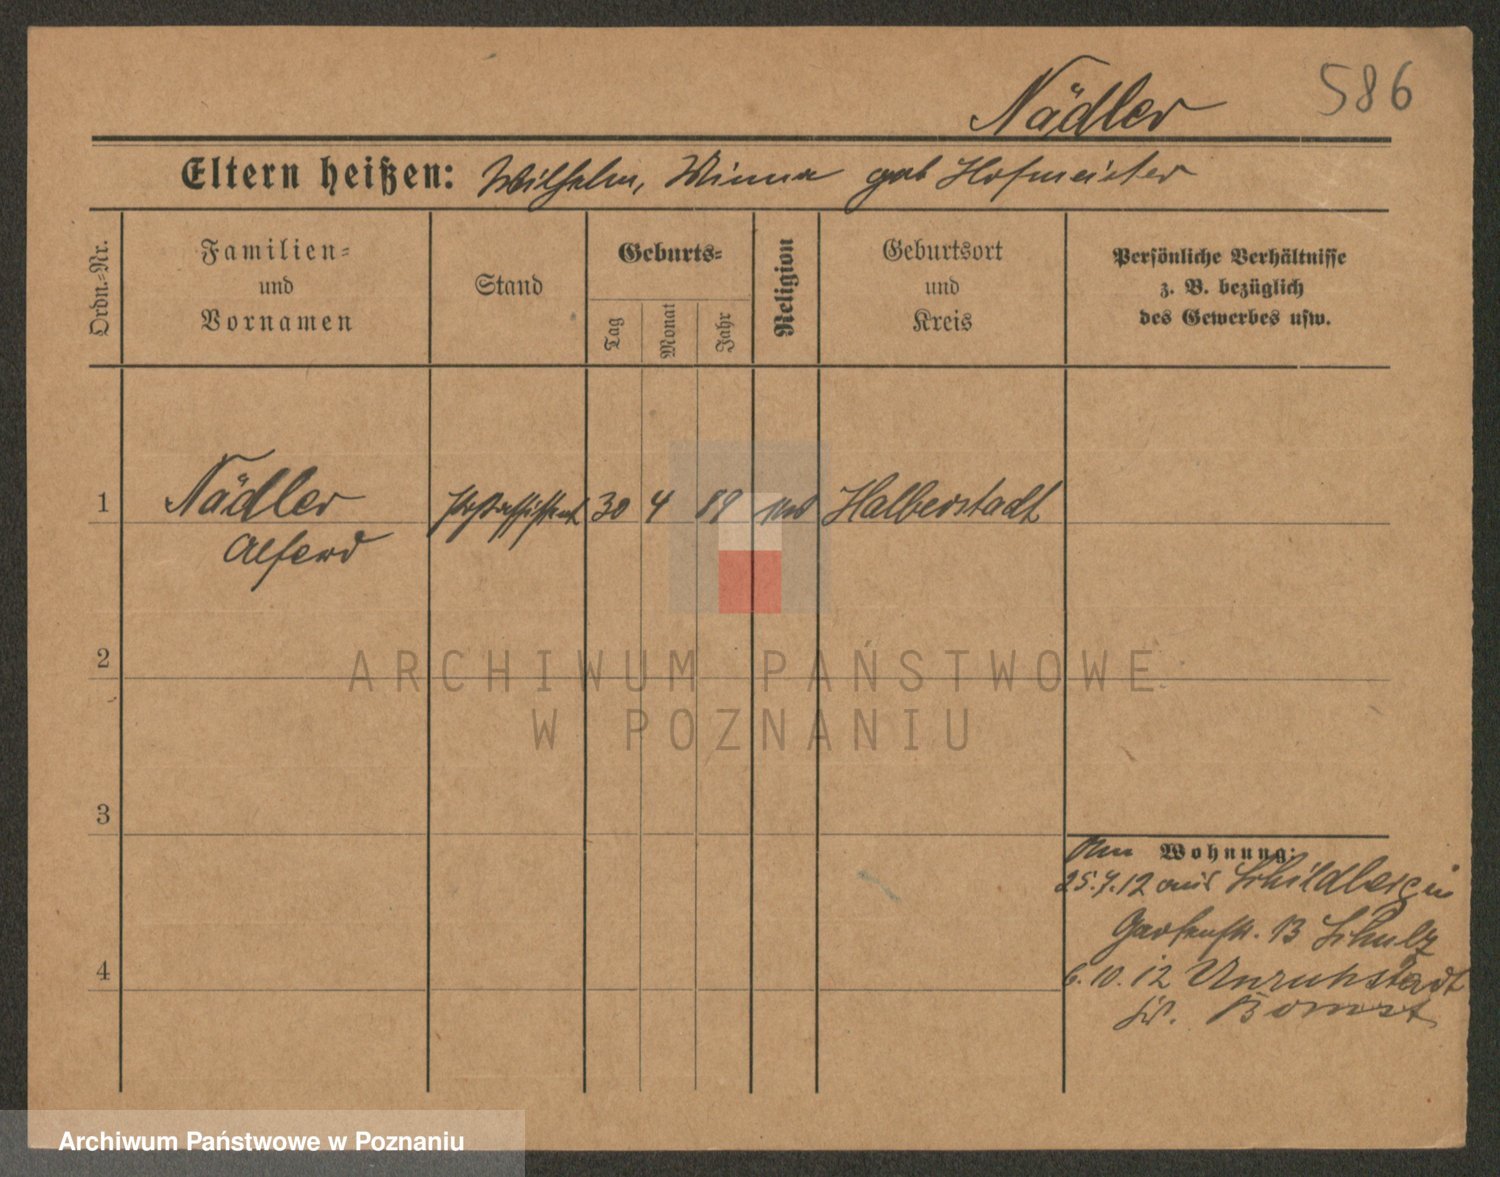 586
Nädler
Eltern heißen: Wilhelm, Minna geb Hofmeister
Ordn.-Nr.
Familien-
und
Vornamen
Stand
Geburts-
Tag
Monat
Jahr
Religion
Geburtsort
und
Kreis
Persönliche Verhältnisse
z. B. bezüglich
des Gewerbes usw.
1 Nädler Postassistent 30 4 89 Halberstadt
Alfred
2
3
4
Wohnung:
25.7.12 aus Schildberg in
Gartenstr. 13 Schulz
6.10.12 Unruhstadt
Bomst
ARCHIWUM PAŃSTWOWE
W POZNANIU
Archiwum Państwowe w Poznaniu